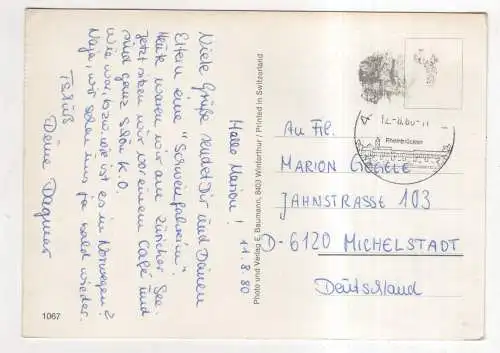 Hallo Marion!
11.8.80
Viele Grüße sendet Dir und Deinen
Eltern eine "Schweinfahrerin".
Heute waren wir am Züricher See.
Jetzt sitzen wir vor einem Café und
sind ganz schön K.O.
Wie war, bzw. wie ist es in Norwegen?
Naja, wir sehen uns ja bald wieder.
Tschüß
Deine Dagmar
1067
Photo und Verlag E. Baumann, 8403 Winterthur / Printed in Switzerland
Rheinbrücken
An Frl.
MARION GEGELE
JAHNSTRASSE 103
D-6120 MICHELSTADT
Deutschland